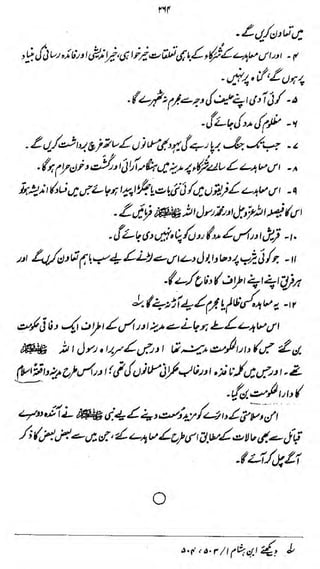 ۲۶۴
میں تعاون کریں گے۔
۴۔ اور اس معاہدے کے شرکاء کے باہمی تعلقات خیر خواہی، خیر اندیشی اور فائدہ رسانی کی بنیاد
پر ہوں گے، گناہ پر نہیں۔
۵۔ کوئی آدمی اپنے حلیف کی وجہ سے مجرم نہ ٹھہرے گا۔
۶۔ مظلوم کی مدد کی جائے گی۔
۷۔ جب تک جنگ برپا رہے گی یہود بھی مسلمانوں کے ساتھ خرچ برداشت کریں گے۔
۸۔ اس معاہدے کے سارے شرکاء پر مدینہ میں ہنگامہ آرائی اور کشت و خون حرام ہوگا۔
۹۔ اس معاہدے کے فریقوں میں کوئی نئی بات یا جھگڑا پیدا ہو جائے جس میں فساد کا اندیشہ ہو تو
اس کا فیصلہ اللہ عز وجل اور محمد رسول اللہ ﷺ فرمائیں گے۔
۱۰۔ قریش اور اس کے مددگاروں کو پناہ نہیں دی جائے گی۔
۱۱۔ جو کوئی یثرب پر دھاوا بول دے اس سے لڑنے کے لیے سب باہم تعاون کریں گے اور
ہر فریق اپنے اپنے اطراف کا دفاع کرے گا۔
۱۲۔ یہ معاہدہ کسی ظالم یا مجرم کے لیے آڑ نہ بنے گا ؎
اس معاہدے کے طے ہو جانے سے مدینہ اور اس کے اطراف ایک وفاقی حکومت
بن گئے جس کا دارالحکومت مدینہ تھا اور جس کے سربراہ رسول اللہ ﷺ
تھے۔ اور جس میں کلمہ نافذہ اور غالب حکمرانی مسلمانوں کی تھی؛ اور اس طرح مدینہ واقعۃً اسلام
کا دارالحکومت بن گیا۔
امن و سلامتی کے دائرے کو مزید وسعت دینے کے لیے نبی ﷺ نے آئندہ دوسرے
قبائل سے بھی حالات کے مطابق اسی طرح کے معاہدے کیے، جن میں سے بعض بعض کا ذکر
آگے چل کر آئے گا۔
؎ دیکھئے ابن ہشام ۱/ ۵۰۳، ۵۰۴